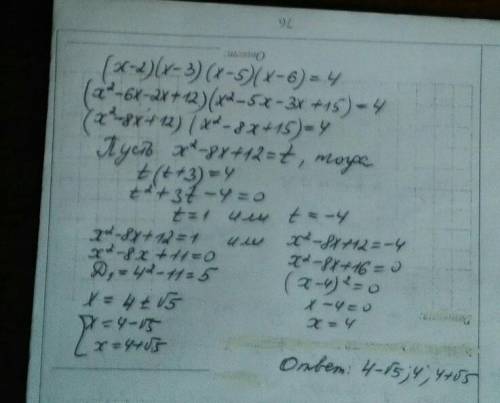 76
Ответ:
(x-2)(x-3)(x-5)(x-6)=4
(x²-6x-2x+12)(x²-5x-3x+15)=4
(x²-8x+12)(x²-8x+15)=4
Пусть x²-8x+12=t, тогда
t(t+3)=4
t²+3t-4=0
t=1 или t=-4
x²-8x+12=1 или x²-8x+12=-4
x²-8x+11=0 x²-8x+16=0
D₁=4²-11=5 (x-4)²=0
x=4±√5 x-4=0
[x=4-√5 x=4
x=4+√5
Ответ: 4-√5; 4; 4+√5